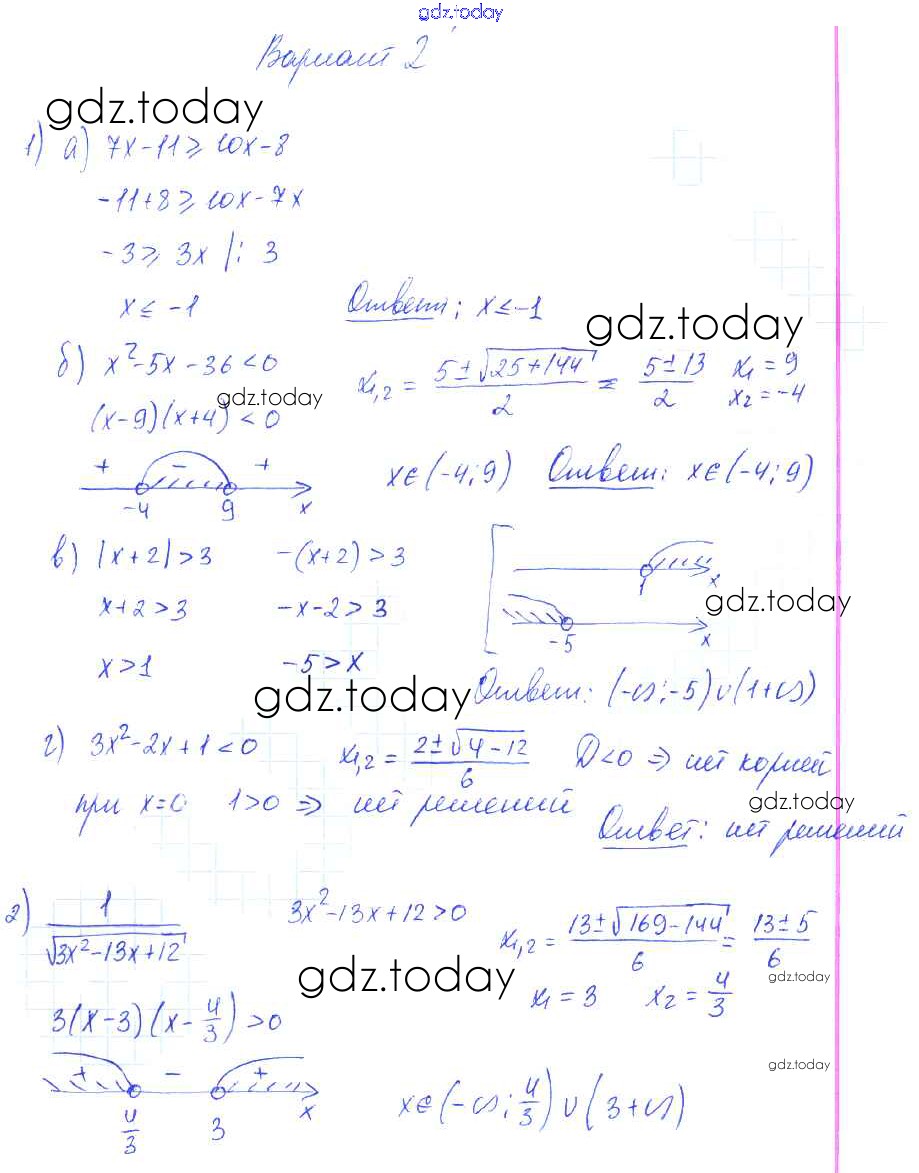 gdz.today
Вариант 2
gdz.today
1) а) 7x-11 ⩾ 10x-8
-11+8 ⩾ 10x-7x
-3 ⩾ 3x |: 3
x ⩽ -1 Ответ: x ⩽ -1
gdz.today
б) x²-5x-36<0 x₁,₂ = (5±√(25+144))/2 = (5±13)/2 x₁=9 x₂=-4
gdz.today
(x-9)(x+4)<0
+ - + x∈(-4;9) Ответ: x∈(-4;9)
-4 9 x
в) |x+2|>3 -(x+2)>3
1 x
gdz.today
x+2>3 -x-2>3
-5 x
x>1 -5>x
gdz.today
Ответ: (-∞;-5)∪(1+∞)
г) 3x²-2x+1<0 x₁,₂ = (2±√(4-12))/6 D<0 ⇒ нет корней
gdz.today
при x=0 1>0 ⇒ нет решений
Ответ: нет решений
2) 1/√(3x²-13x+12) 3x²-13x+12>0 x₁,₂ = (13±√(169-144))/6 = (13±5)/6
gdz.today
gdz.today
x₁=3 x₂=4/3
3(x-3)(x-4/3)>0
gdz.today
+ - +
4/3 3 x
x∈(-∞;4/3)∪(3+∞)